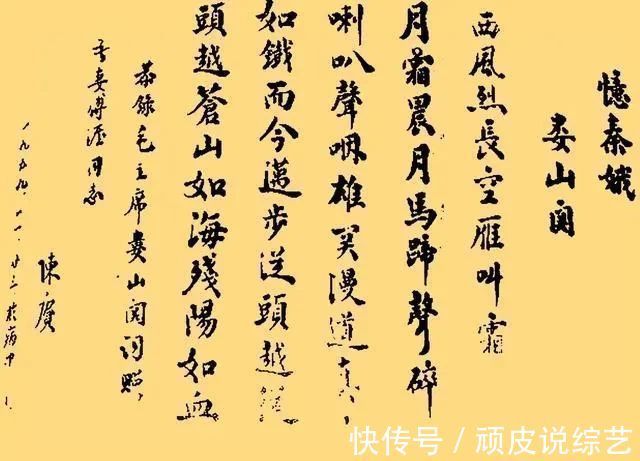 憶秦娥
娄山関
西風烈長空雁叫霜
月霜晨月馬蹄聲碎
喇叭聲咽雄関漫道真
如鐵而今邁步従頭越
頭越蒼山如海殘陽如血
恭錄毛主席婁山関詞贈
吾妻傅涯同志
陳賡
一九五九、十一、廿三、於病中
快传号 / 顽皮说综艺